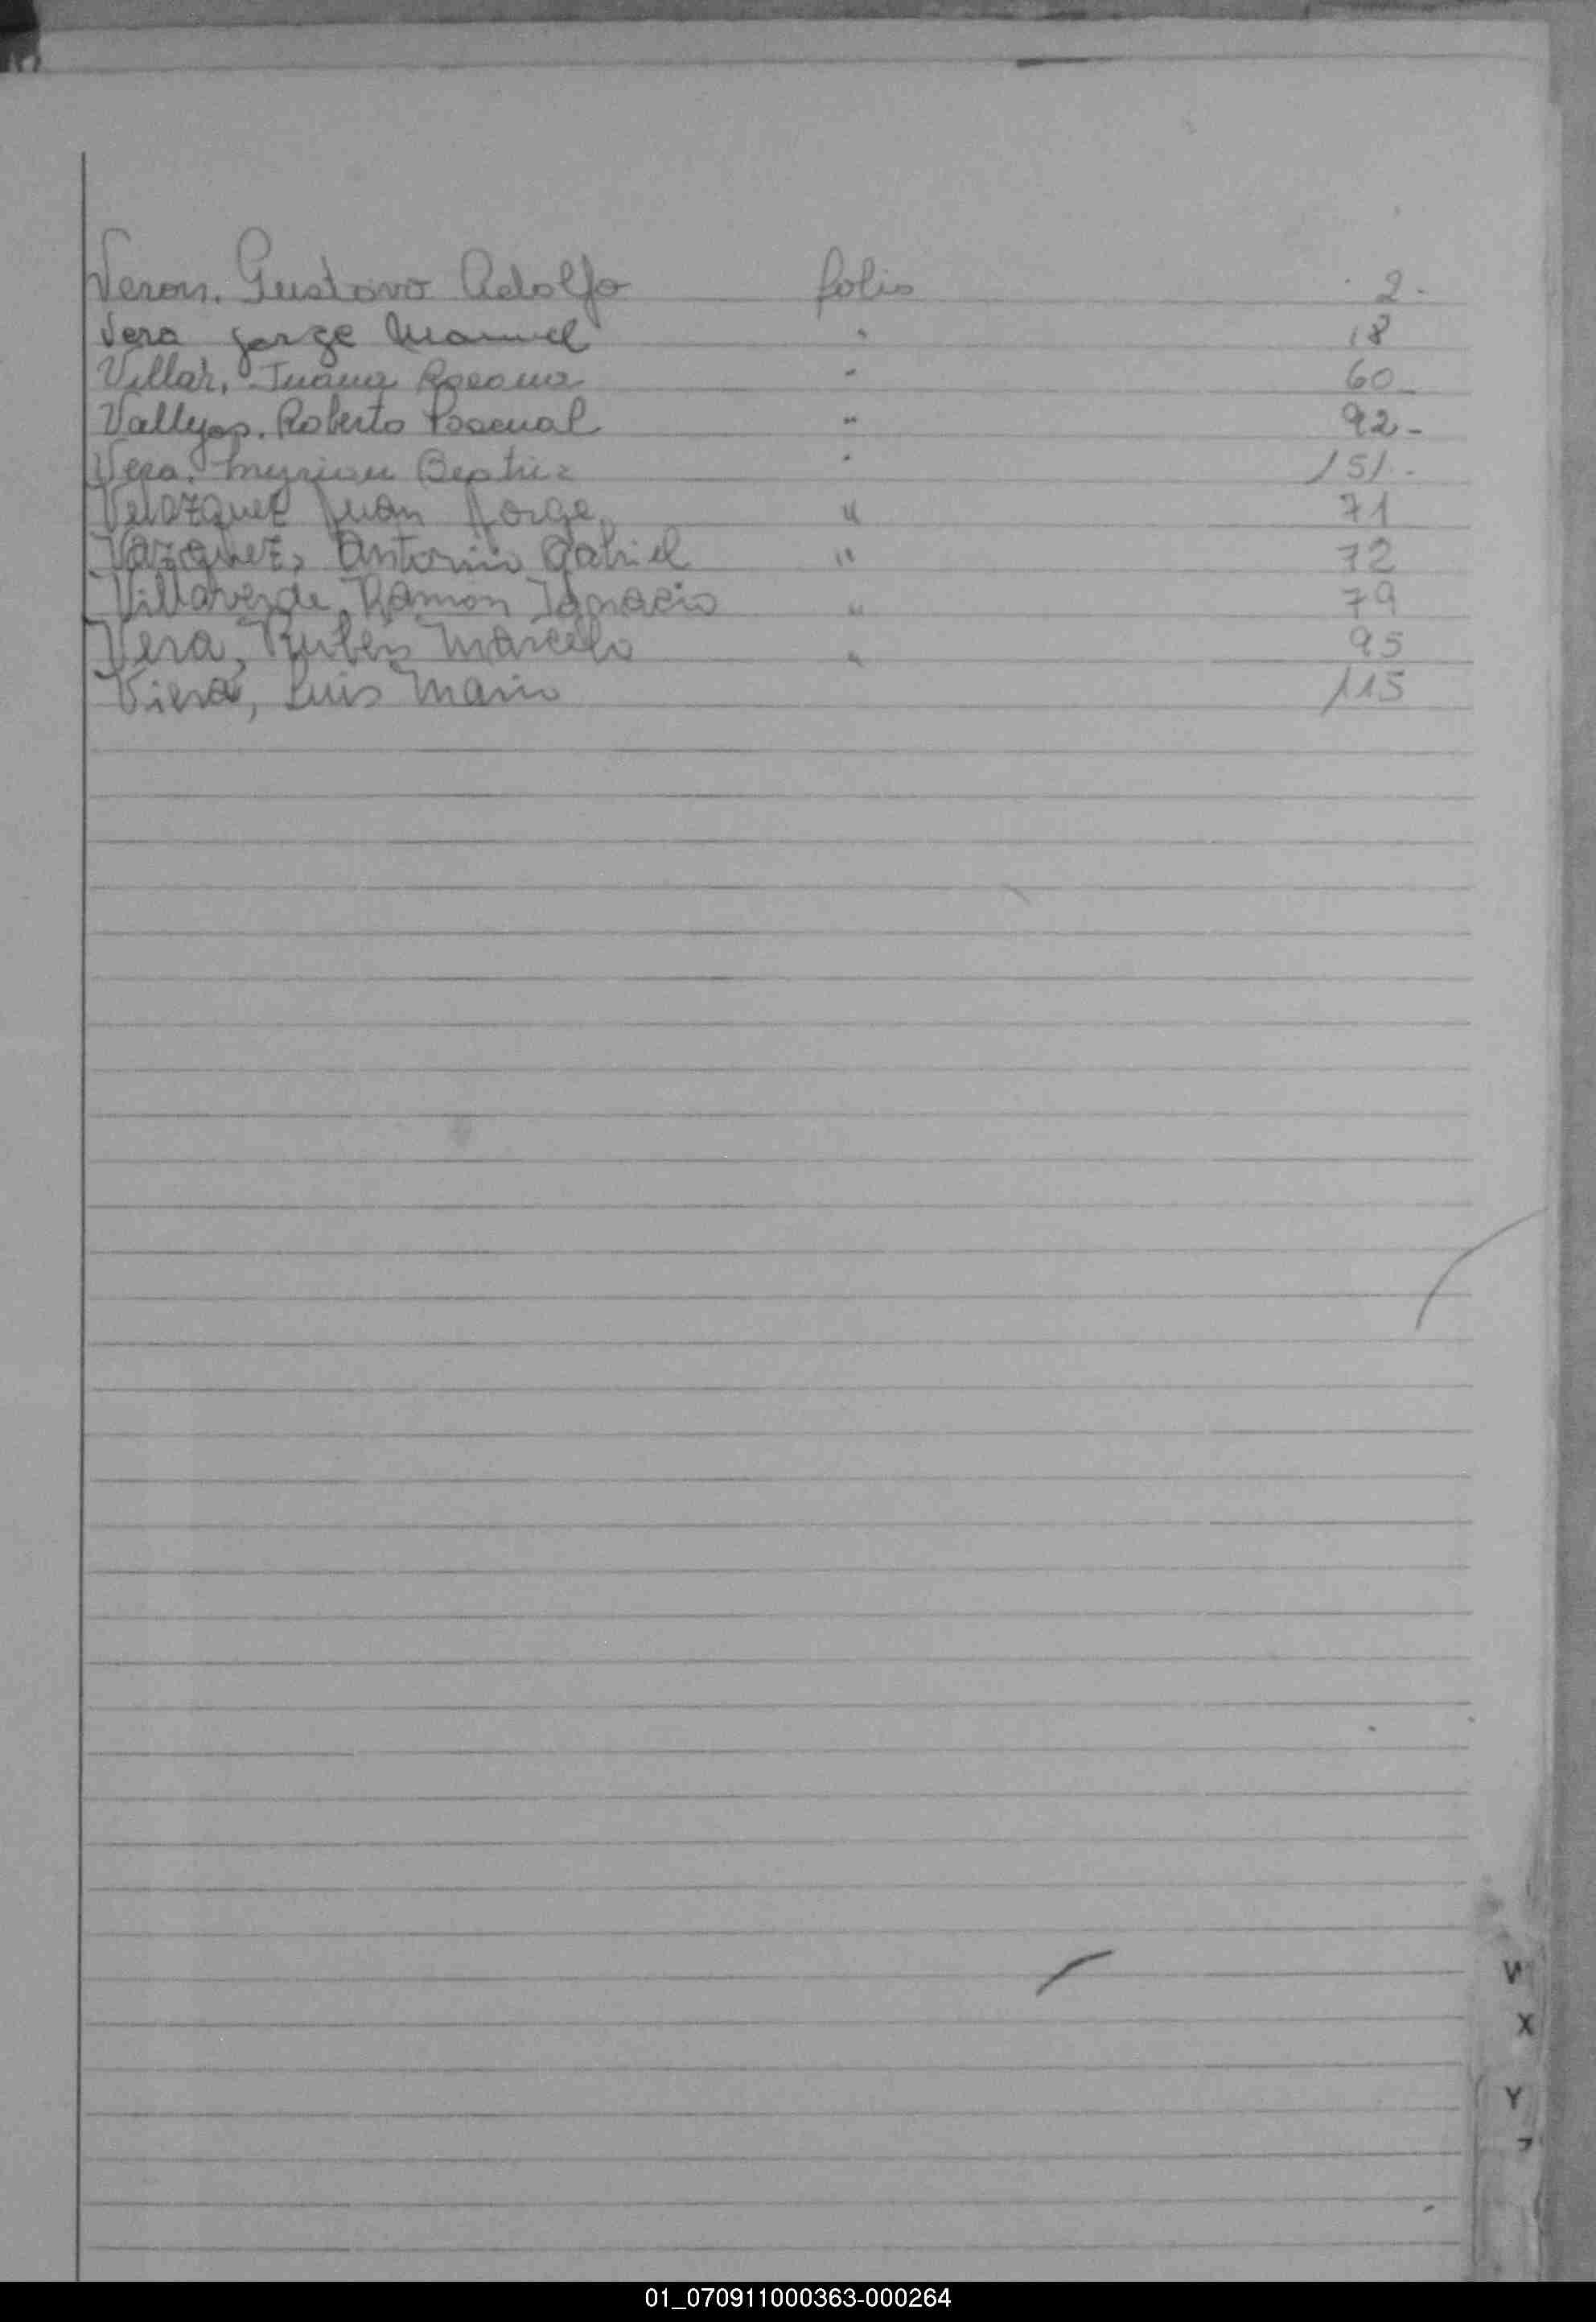 Veron, Gustavo Adolfo folio 2.-
Vera Jorge Manuel " 18
Villar, Juana Rosana " 60
Vallejos, Roberto Pascual " 92-
Vera, Myrian Beatriz " 151.-
Velazquez Juan Jorge " 71
Vazquez, Antonio Gabriel " 72
Villaverde, Ramon Ignacio " 79
Vera, Ruben Marcelo " 95
Viera, Luis Mario 115
W
X
Y
Z
01_070911000363-000264